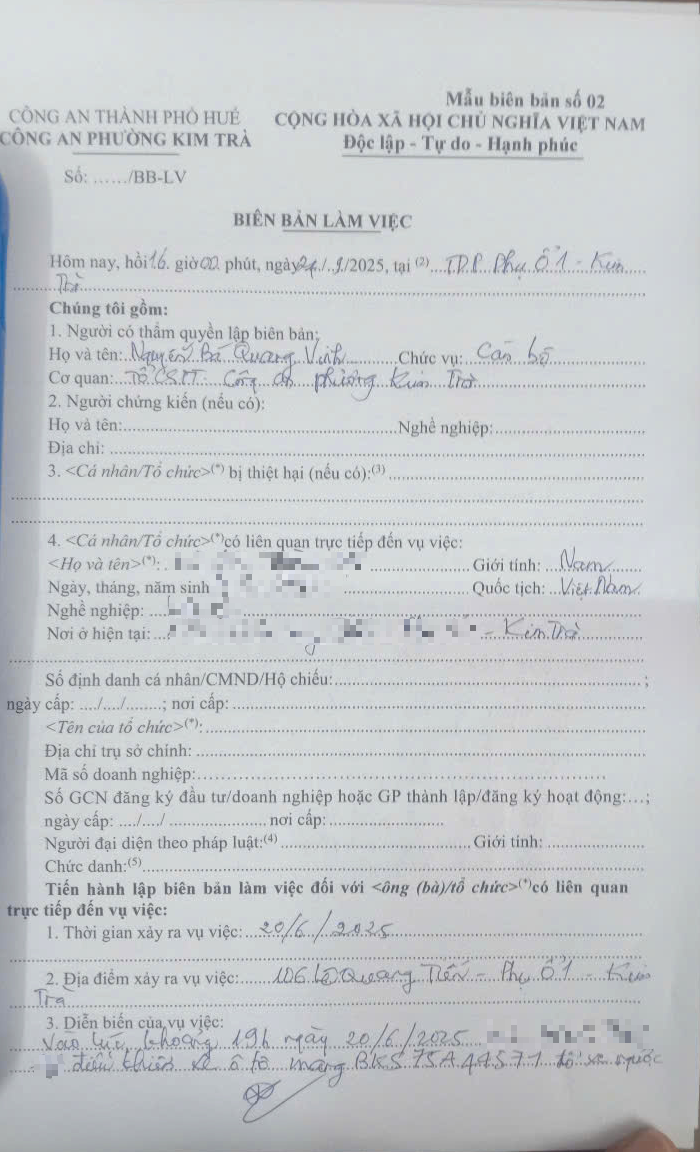 Mẫu biên bản số 02
CÔNG AN THÀNH PHỐ HUẾ
CỘNG HÒA XÃ HỘI CHỦ NGHĨA VIỆT NAM
CÔNG AN PHƯỜNG KIM TRÀ
Độc lập - Tự do - Hạnh phúc
Số: ....../BB-LV
BIÊN BẢN LÀM VIỆC
Hôm nay, hồi 16 giờ 00 phút, ngày /9/2025, tại (2) TDP Phụ Ổ 1 - Kim
Trà
Chúng tôi gồm:
1. Người có thẩm quyền lập biên bản:
Họ và tên: Nguyễn Bá Quang Vinh Chức vụ: Cán bộ
Cơ quan: Tổ CSTT Công an phường Kim Trà
2. Người chứng kiến (nếu có):
Họ và tên: Nghề nghiệp:
Địa chỉ:
3. <Cá nhân/Tổ chức>(*) bị thiệt hại (nếu có):(3)
4. <Cá nhân/Tổ chức>(*) có liên quan trực tiếp đến vụ việc:
<Họ và tên>(*): Giới tính: Nam
Ngày, tháng, năm sinh Quốc tịch: Việt Nam
Nghề nghiệp:
Nơi ở hiện tại: - Kim Trà
Số định danh cá nhân/CMND/Hộ chiếu: ;
ngày cấp: ..../..../.......; nơi cấp:
<Tên của tổ chức>(*):
Địa chỉ trụ sở chính:
Mã số doanh nghiệp:
Số GCN đăng ký đầu tư/doanh nghiệp hoặc GP thành lập/đăng ký hoạt động:...;
ngày cấp: ..../..../ nơi cấp:
Người đại diện theo pháp luật:(4) Giới tính:
Chức danh:(5)
Tiến hành lập biên bản làm việc đối với <ông (bà)/tổ chức>(*) có liên quan
trực tiếp đến vụ việc:
1. Thời gian xảy ra vụ việc: 20/6/2025
2. Địa điểm xảy ra vụ việc: 106 Lê Quang Tiến - Phụ Ổ 1 - Kim
Trà
3. Diễn biến của vụ việc:
Vào lúc khoảng 19h ngày 20/6/2025
điều khiển xe ô tô mang BKS 75A 44571 đổ xe ngược